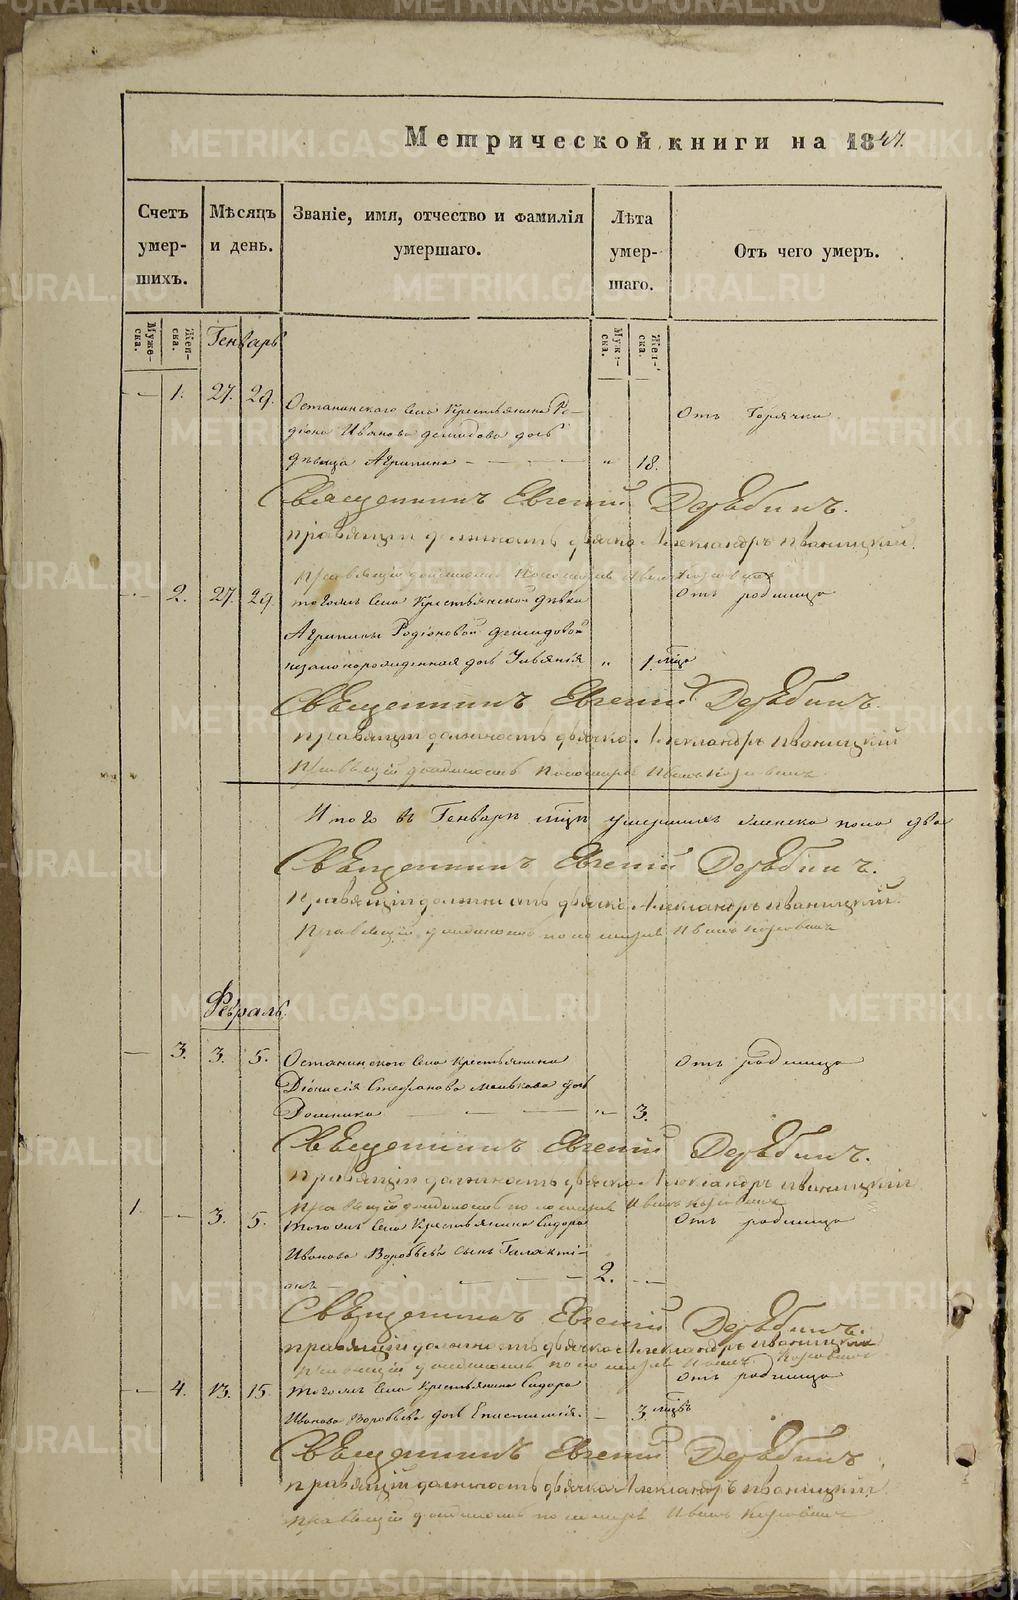 Метрической книги на 1847.
Счетъ умер-шихъ.
Мѣсяцъ и день.
Званіе, имя, отчество и фамилія умершаго.
Лѣта умер-шаго.
Отъ чего умеръ.
Муже-ска.
Жен-ска.
Генварь
Муже-ска.
Жен-ска.
— 1. 27. 29. Останинскаго Села Крестьянина Ро-
діона Иванова Демидова дочь
дѣвица Агрипина — — — " 18.
Отъ Горячки
Священникъ Евгеній Дерябинъ.
правящій должность дьячка Александръ Иваницкій.
Правящій должность Пономаря Иванъ
— 2. 27. 29. тогожъ Села Крестьянской дѣвки
Отъ родимца
Агрипины Родіоновой Демидовой
незаконорожденная дочь Ульянія " 1. мѣца
Священникъ Евгеній Дерябинъ.
правящій должность дьячка Александръ Иваницкій
Правящій должность Пономаря Иванъ
Итого въ Генварѣ мѣцѣ умершихъ женска пола два
Священникъ Евгеній Дерябинъ.
Правящій должность дьячка Александръ Иваницкій.
Правящій должность пономаря Иванъ
Февраль
— 3. 3. 5. Останинского Села Крестьянина
Отъ родимца
Діонисія Стефанова дочь
Домника — — — "— 3.
Священникъ Евгеній Дерябинъ.
правящій должность дьячка Александръ Иваницкій
Правящій должность пономаря Иванъ
1. — 3. 5. тогожъ Села Крестьянина Сидора
Отъ родимца
Иванова Воробьева сынъ Галакті-
онъ — — — — 2. —
Священникъ Евгеній Дерябинъ.
правящій должность дьячка Александръ Иваницкій
Правящій должность пономаря Иванъ
— 4. 13. 15. тогожъ Села Крестьянина Сидора
Отъ родимца
Иванова Воробьева дочь Епистимія. — 3 мѣцъ
Священникъ Евгеній Дерябинъ.
правящій должность дьячка Александръ Иваницкій.
правящій должность пономаря Иванъ
METRIKI.GASO-URAL.RU